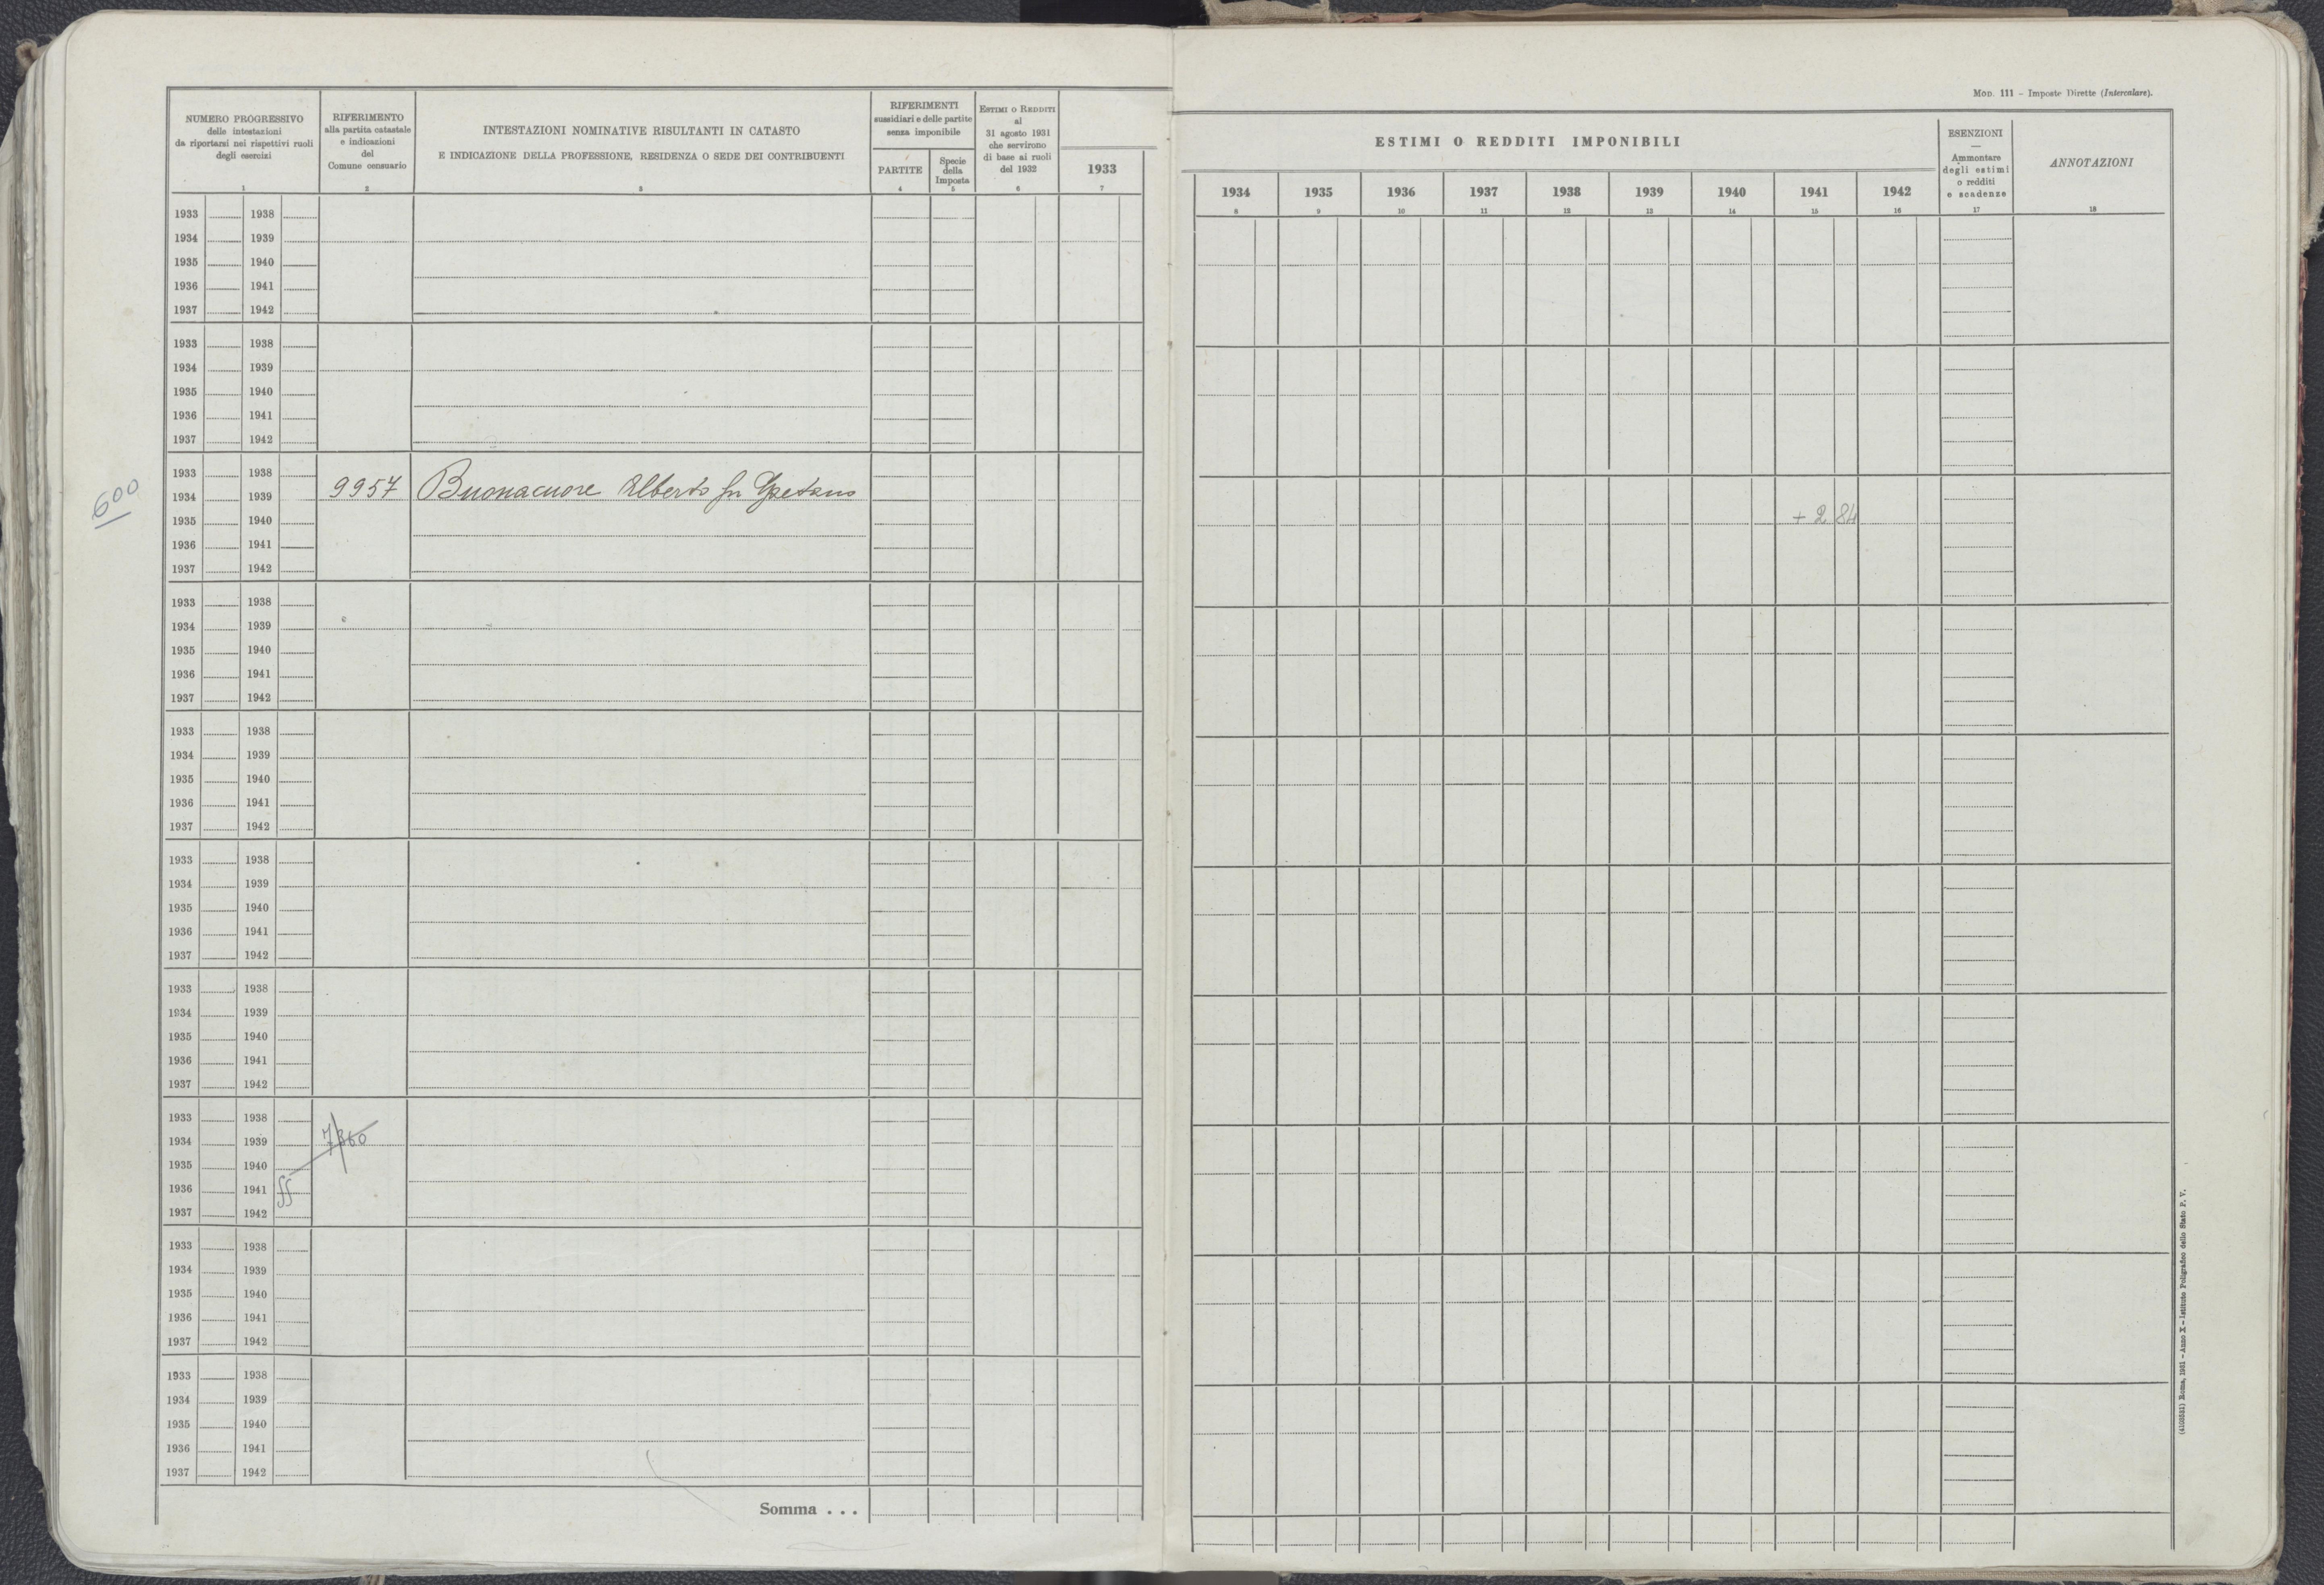 Mod. 111 – Imposte Dirette (Intercalare).
NUMERO PROGRESSIVO
delle intestazioni
da riportarsi nei rispettivi ruoli
degli esercizi
1
RIFERIMENTO
alla partita catastale
e indicazioni
del
Comune censuario
2
INTESTAZIONI NOMINATIVE RISULTANTI IN CATASTO
E INDICAZIONE DELLA PROFESSIONE, RESIDENZA O SEDE DEI CONTRIBUENTI
3
RIFERIMENTI
sussidiari e delle partite
senza imponibile
PARTITE
4
Specie
della
Imposta
5
ESTIMI O REDDITI
al
31 agosto 1931
che servirono
di base ai ruoli
del 1932
6
1933
7
ESTIMI O REDDITI IMPONIBILI
1934 1935 1936 1937 1938 1939 1940 1941 1942
8 9 10 11 12 13 14 15 16
ESENZIONI
—
Ammontare
degli estimi
o redditi
e scadenze
17
ANNOTAZIONI
18
1933 1938
1934 1939
1935 1940
1936 1941
1937 1942
1933 1938
1934 1939
1935 1940
1936 1941
1937 1942
600
1933 1938
1934 1939 9957 Buonacuore Alberto fu Gaetano + 2 84
1935 1940
1936 1941
1937 1942
1933 1938
1934 1939
1935 1940
1936 1941
1937 1942
1933 1938
1934 1939
1935 1940
1936 1941
1937 1942
1933 1938
1934 1939
1935 1940
1936 1941
1937 1942
1933 1938
1934 1939
1935 1940
1936 1941
1937 1942
1933 1938
1934 1939 7360
1935 1940
1936 1941
1937 1942
1933 1938
1934 1939
1935 1940
1936 1941
1937 1942
1933 1938
1934 1939
1935 1940
1936 1941
1937 1942
Somma . . .
(4103531) Roma, 1931 – Anno X – Istituto Poligrafico dello Stato P. V.